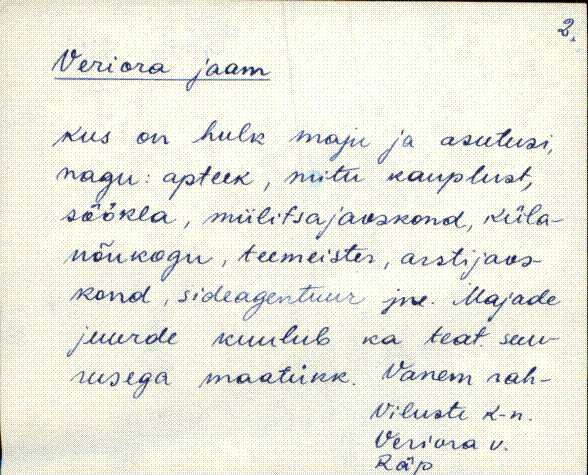 2.
Veriora jaam
kus on hulk maju ja asutusi,
nagu: apteek, mitu kauplust,
söökla, miilitsajaoskond, küla-
nõukogu, teemeister, arstijaos-
kond, sideagentuur jne. Majade
juurde kuulub ka teat. suu-
rusega maatükk. Vanem rah-
Viluste k-n.
Veriora v.
Räp